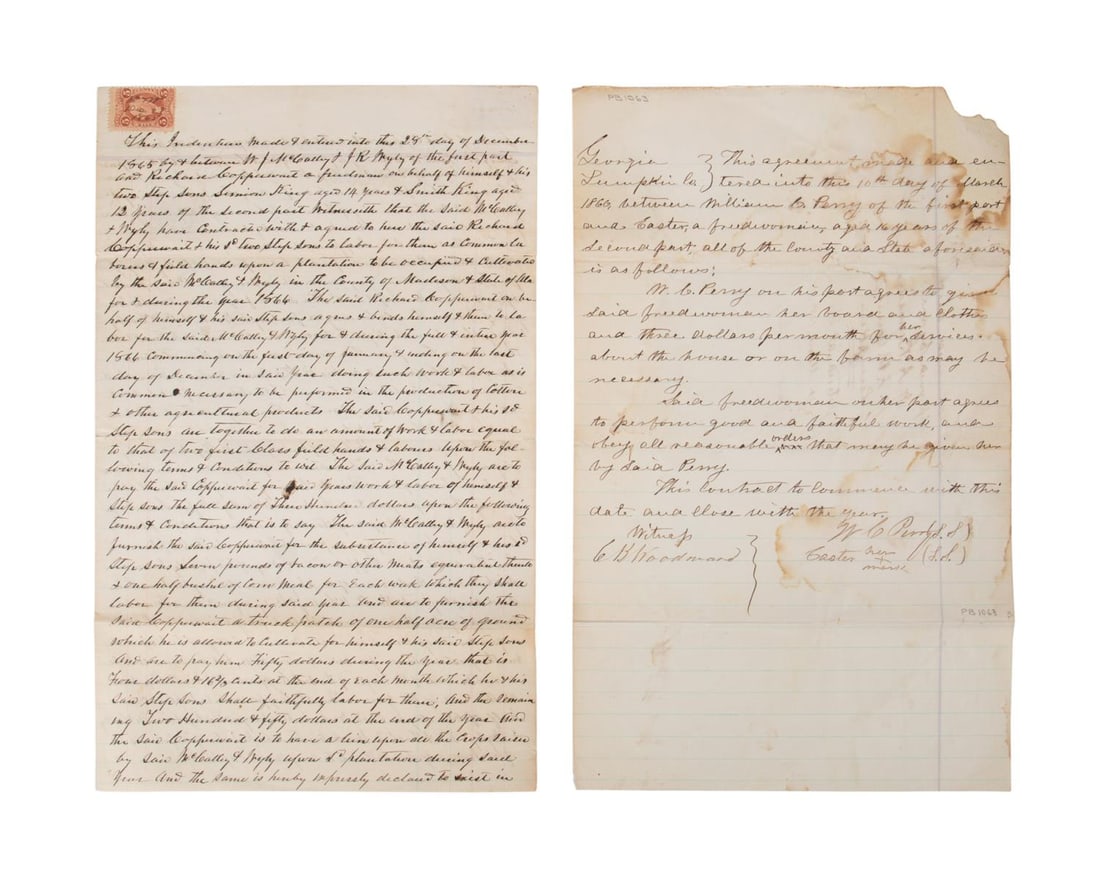 This Indenture made & entered into this 28th day of December
1865 by & between W. J. McCalley & J. R. Wyly of the first part
and Richard Coppewait a freedman on behalf of himself & his
two Step Sons Simion King aged 14 years & Smith King aged
12 Years of the Second part Witnesseth that the Said McCalley
& Wyly have Contracted with & agreed to hire the said Richard
Coppewait & his sd two Step Sons to labor for them as Common la
borers & field hands upon a plantation to be occupied & Cultivated
by the said McCalley & Wyly in the County of Madison & State of Ala
for & during the year 1866 The Said Richard Coppewait on be
half of himself & his said Step Sons agrees & binds himself & them to la
bor for the Said McCalley & Wyly for & during the full & entire Year
1866 Commencing on the first day of January & ending on the last
day of December in said Year doing such work & labor as is
Common & necessary to be performed in the production of Cotton
& other agricultural products The said Coppewait & his sd
Step sons are together to do an amount of work & labor equal
to that of two first Class field hands & laborers upon the fol-
lowing terms & Conditions to wit The Said McCalley & Wyly are to
pay the said Coppewait for said Years work & labor of himself &
Step Sons the full Sum of Three Hundred dollars upon the following
terms & Conditions that is to say The said McCalley & Wyly are to
furnish the said Coppewait for the subsistence of himself & his sd
Step Sons Seven pounds of bacon or other Meats equivalent thereto
& one half bushel of Corn Meal for Each week which they shall
labor for them during said Year And are to furnish the
Said Coppewait a truck patch of one half acre of ground
which he is allowed to Cultivate for himself & his said Step Sons
And are to pay him Fifty dollars during the Year that is
Four dollars & 16 2/3 Cents at the end of each Month which he & his
said Step Sons Shall faithfully labor for them, And the remain
ing Two Hundred & fifty dollars at the end of the Year And
the Said Coppewait is to have a lien upon all the Crops raised
by said McCalley & Wyly upon sd plantation during said
Year And the same is hereby expressly declared to exist in
PB 1063
Georgia } This agreement made and en-
Lumpkin Co. } tered into this 10th day of March
1866, between William C. Perry of the first part
and Easter, a freedwoman, aged 16 years of the
second part, all of the County and State aforesaid
is as follows;
W. C. Perry on his part agrees to give
said freedwoman her board and clothes
and three dollars per month for her services
about the house or on the farm as may be
necessary.
Said freedwoman on her part agrees
to perform good and faithful work, and
obey all reasonable orders that may be given her
by said Perry.
This contract to commence with this
date and close with the year.
Witness W C Perry (L.S.)
C B Woodward Easter her + mark (L.S.)
PB 1063